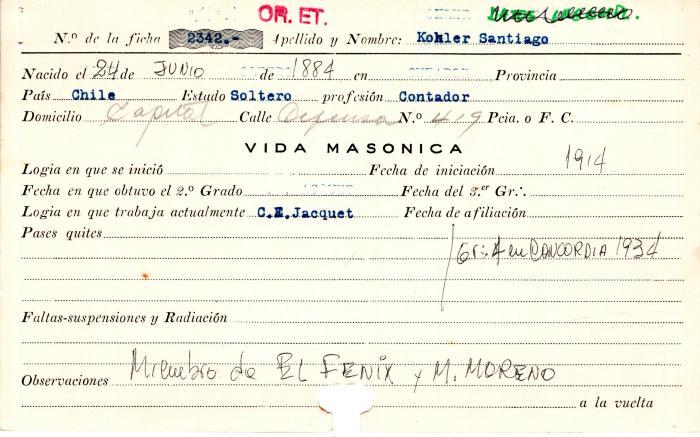 OR. ET.
N.º de la ficha 2342.- Apellido y Nombre: Kohler Santiago
Nacido el 24 de JUNIO de 1884 en Provincia
País Chile Estado Soltero profesión Contador
Domicilio Capital Calle Defensa N.º 419 Pcia. o F. C.
VIDA MASONICA
Logia en que se inició Fecha de iniciación 1914
Fecha en que obtuvo el 2.º Grado Fecha del 3.er Gr∴
Logia en que trabaja actualmente C.E.Jacquet Fecha de afiliación
Pases quites
Gr∴ 4 en CONCORDIA 1934
Faltas-suspensiones y Radiación
Observaciones Miembro de EL FENIX y M. MORENO
a la vuelta